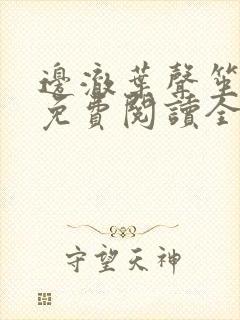 邊澈葉聲笙
免費閱讀全
守望天神